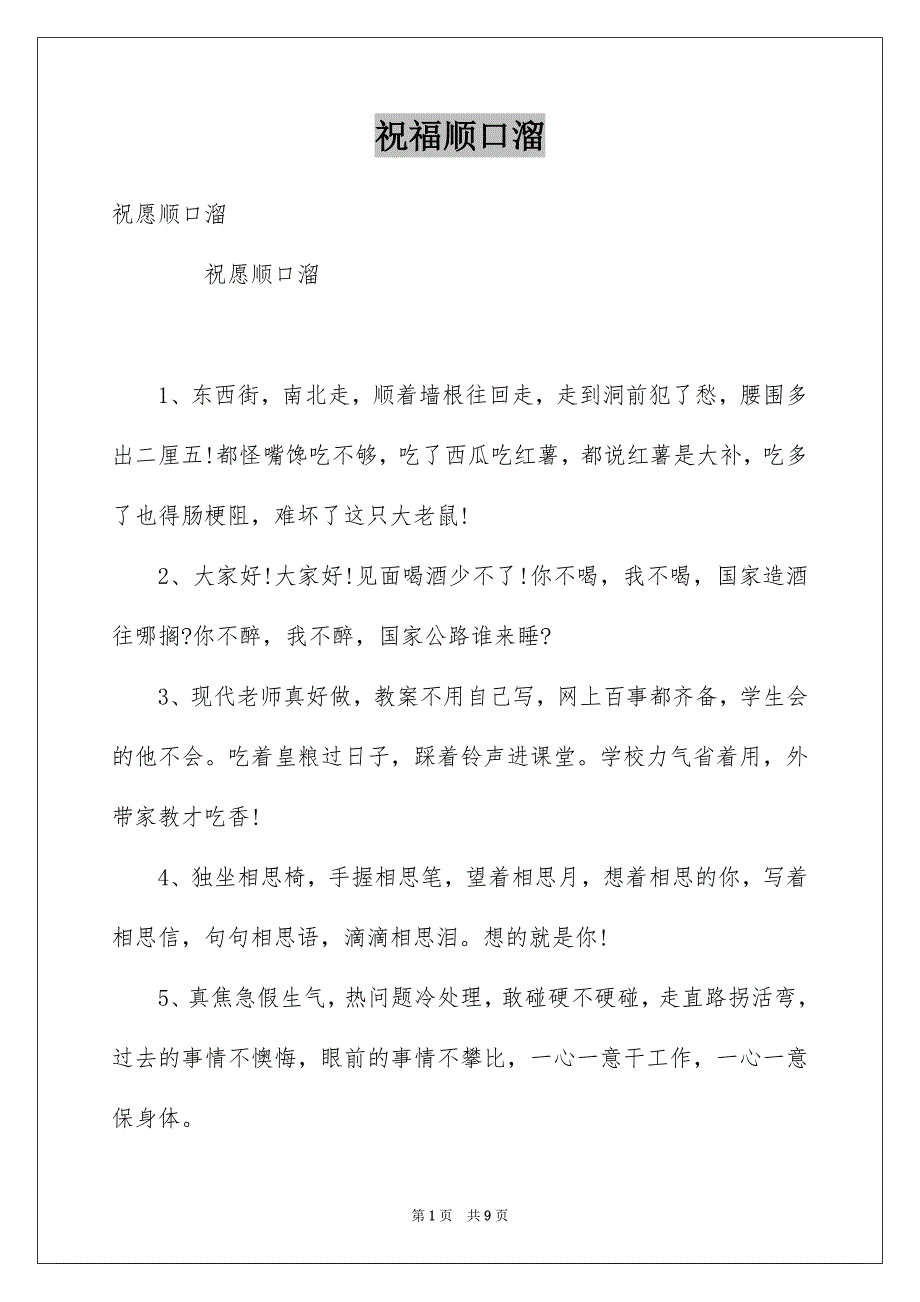 祝福顺口溜
祝愿顺口溜
祝愿顺口溜
1、东西街，南北走，顺着墙根往回走，走到洞前犯了愁，腰围多
出二厘五!都怪嘴馋吃不够，吃了西瓜吃红薯，都说红薯是大补，吃多
了也得肠梗阻，难坏了这只大老鼠!
2、大家好!大家好!见面喝酒少不了!你不喝，我不喝，国家造酒
往哪搁?你不醉，我不醉，国家公路谁来睡?
3、现代老师真好做，教案不用自己写，网上百事都齐备，学生会
的他不会。吃着皇粮过日子，踩着铃声进课堂。学校力气省着用，外
带家教才吃香!
4、独坐相思椅，手握相思笔，望着相思月，想着相思的你，写着
相思信，句句相思语，滴滴相思泪。想的就是你!
5、真焦急假生气，热问题冷处理，敢碰硬不硬碰，走直路拐活弯，
过去的事情不懊悔，眼前的事情不攀比，一心一意干工作，一心一意
保身体。
第1页 共9页